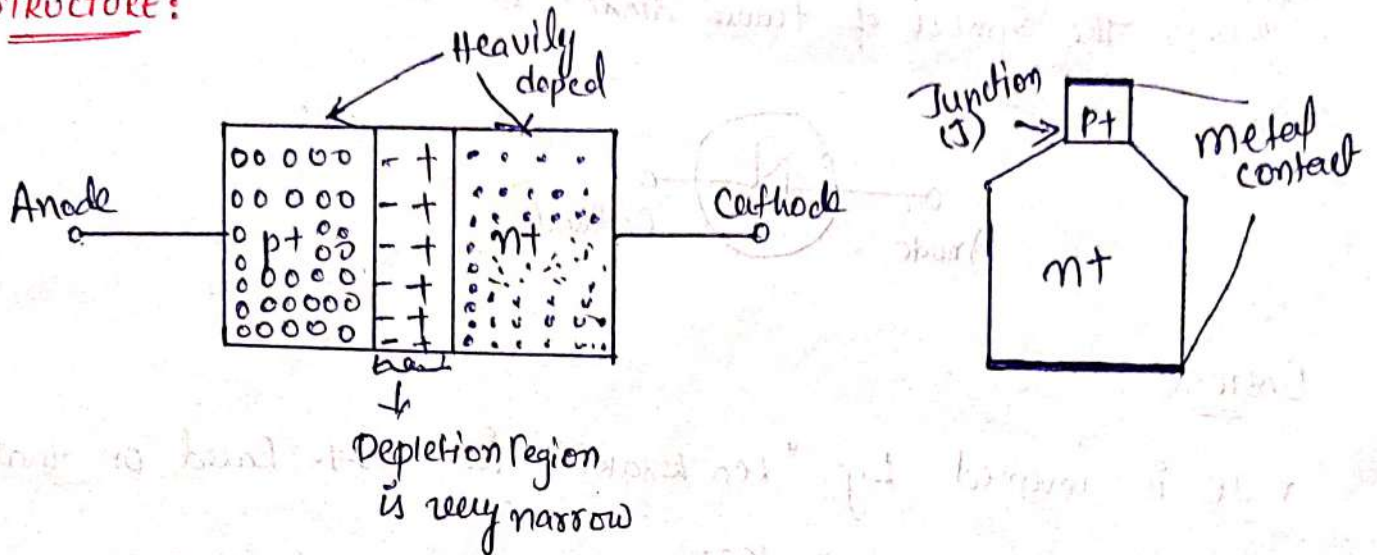 STRUCTURE:
Heavily
doped
Anode
p+
- +
- +
- +
- +
- +
- +
n+
Cathode
Depletion region
is very narrow
Junction
(J)
p+
metal
contact
n+